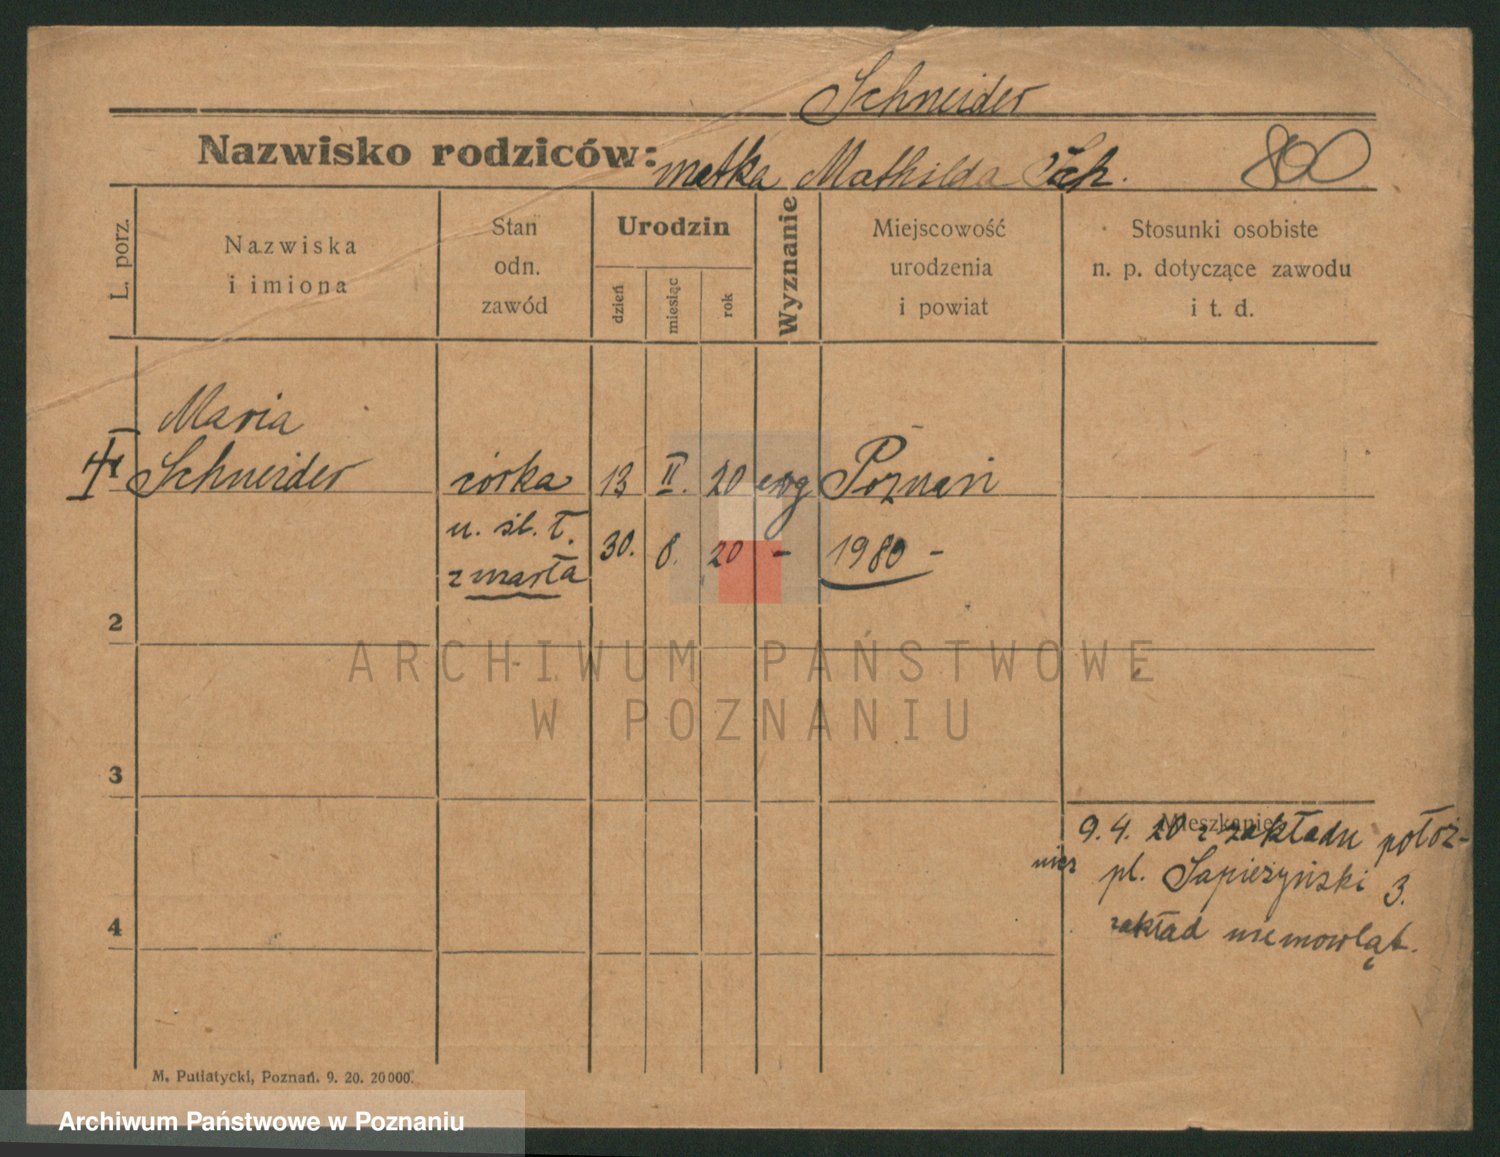 Schneider
Nazwisko rodziców: matka Mathilda Sch. 800
L. porz.
Nazwiska i imiona
Stan odn. zawód
Urodzin
dzień
miesiąc
rok
Wyznanie
Miejscowość urodzenia i powiat
Stosunki osobiste n. p. dotyczące zawodu i t. d.
Maria
1 Schneider córka 13 II. 20 ewg Poznań
u. śl. T.
zmarła 30. 8. 20 - 1980 -
2
ARCHIWUM PAŃSTWOWE
W POZNANIU
3
Mieszkanie
9. 4. 20 z zakładu położ-
nicz pl. Sapieżyński 3.
zakład niemowląt.
4
M. Putiatycki, Poznań. 9. 20. 20000.
Archiwum Państwowe w Poznaniu